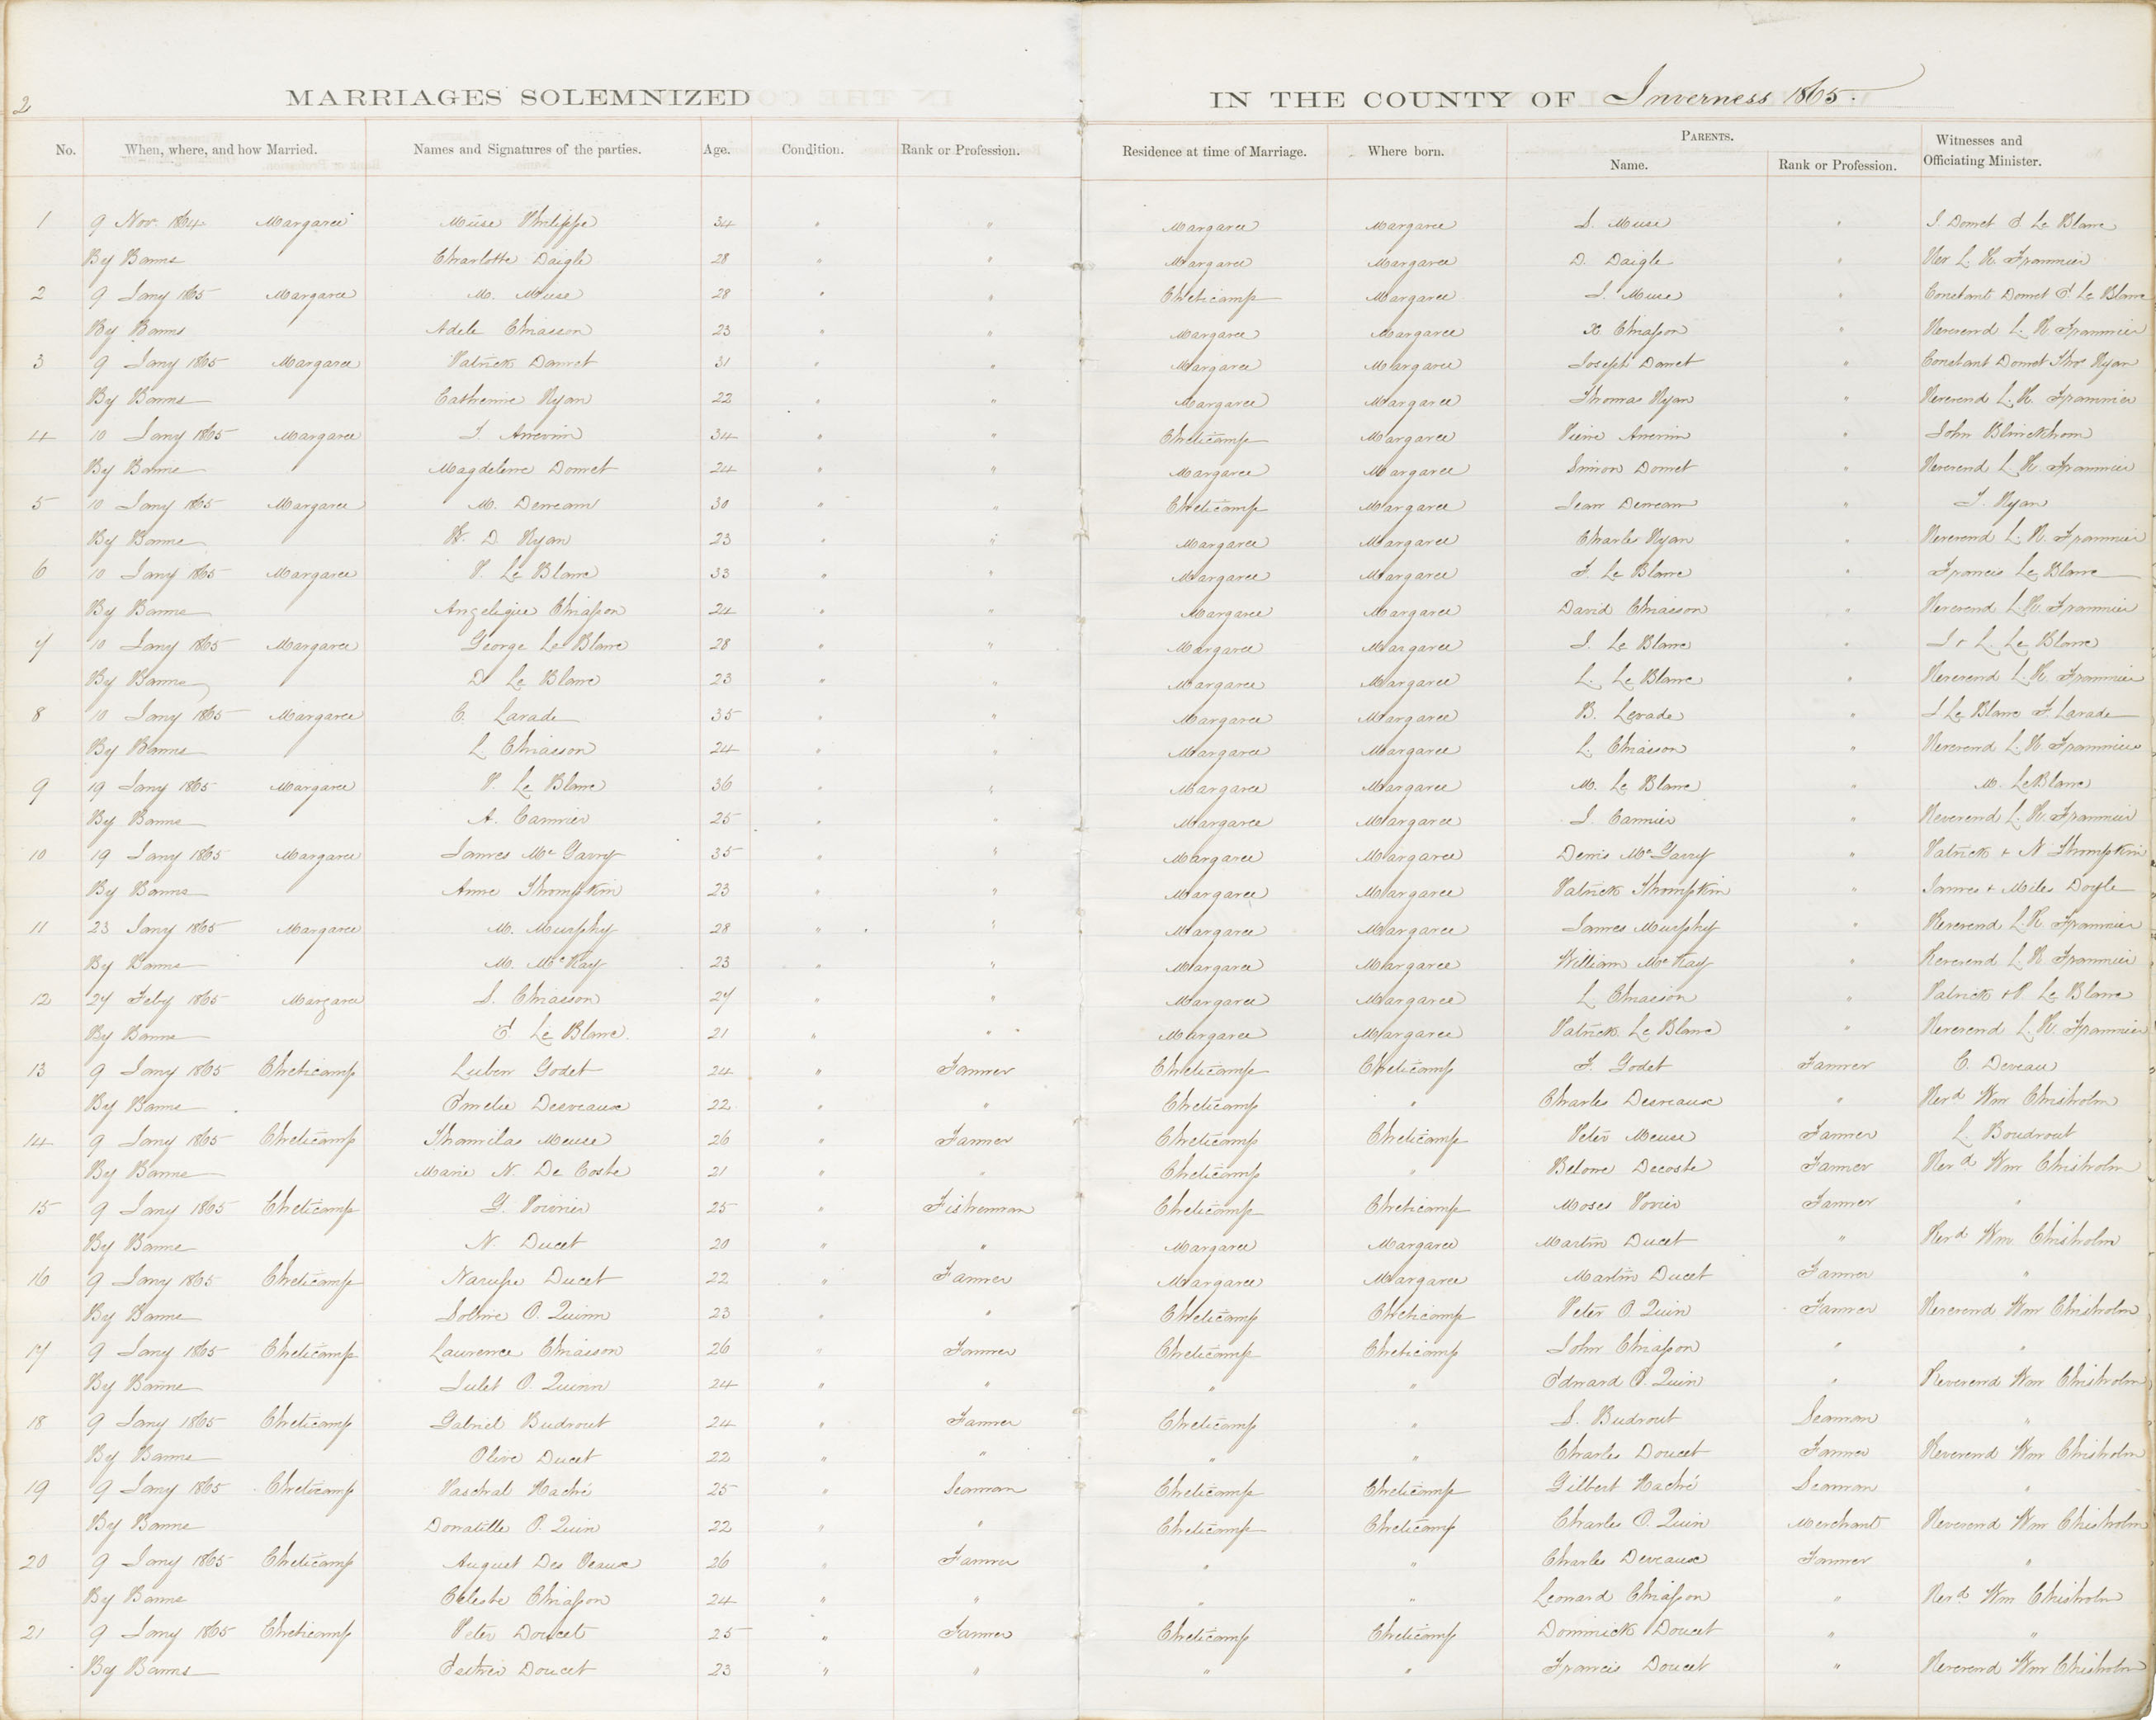 2
MARRIAGES SOLEMNIZED IN THE COUNTY OF Inverness 1865.
No. When, where, and how Married. Names and Signatures of the parties. Age. Condition. Rank or Profession. Residence at time of Marriage. Where born. PARENTS. Name. Rank or Profession. Witnesses and Officiating Minister.
1 9 Nov. 1864 Margaree Muse Philippe 34 " " Margaree Margaree S. Muse " S. Doucet & Le Blanc
By Banns Charlotte Daigle 28 " " Margaree Margaree D. Daigle " Rev L. H.
2 9 Jany 1865 Margaree M. Muse 28 " " Cheticamp Margaree J. Muse " Constant Doucet & Le Blanc
By Banns Adele Chiasson 23 " " Margaree Margaree X Chiasson " Reverend L. H.
3 9 Jany 1865 Margaree Patrick Doucet 31 " " Margaree Margaree Joseph Doucet " Constant Doucet Thos Ryan
By Banns Catherine Ryan 22 " " Margaree Margaree Thomas Ryan " Reverend L. H.
4 10 Jany 1865 Margaree 34 " " Cheticamp Margaree Pierre " John
By Banns Magdelene Doucet 24 " " Margaree Margaree Simon Doucet " Reverend L. H.
5 10 Jany 1865 Margaree M. 30 " " Cheticamp Margaree Jean " J. Ryan
By Banns D. Ryan 23 " " Margaree Margaree Charles Ryan " Reverend L. H.
6 10 Jany 1865 Margaree P. Le Blanc 33 " " Margaree Margaree F. Le Blanc " Francis Le Blanc
By Banns Angelique Chiasson 24 " " Margaree Margaree David Chiasson " Reverend L. H.
7 10 Jany 1865 Margaree George Le Blanc 28 " " Margaree Margaree J. Le Blanc " J & L. Le Blanc
By Banns D Le Blanc 23 " " Margaree Margaree L. Le Blanc " Reverend L. H.
8 10 Jany 1865 Margaree C. Larade 35 " " Margaree Margaree B. Lerade " J Le Blanc F. Larade
By Banns L. Chiasson 24 " " Margaree Margaree L. Chiasson " Reverend L. H.
9 19 Jany 1865 Margaree P. Le Blanc 36 " " Margaree Margaree M. Le Blanc " M. LeBlanc
By Banns A. Cormier 25 " " Margaree Margaree J. Cormier " Reverend L. H.
10 19 Jany 1865 Margaree James Mc Garry 35 " " Margaree Margaree Denis Mc Garry " Patrick & N Thompkin
By Banns Anne Thompkin 23 " " Margaree Margaree Patrick Thompkin " James & Miles Doyle
11 23 Jany 1865 Margaree M. Murphy 28 " " Margaree Margaree James Murphy " Reverend L. H.
By Banns M. Mc Kay 23 " " Margaree Margaree William Mc Kay " Reverend L. H.
12 27 Feby 1865 Margaree S. Chiasson 27 " " Margaree Margaree L Chiasson " Patrick & P. Le Blanc
By Banns E. Le Blanc. 21 " " Margaree Margaree Patrick Le Blanc " Reverend L. H.
13 9 Jany 1865 Cheticamp Luben Godet 24 " Farmer Cheticamp Cheticamp F. Godet Farmer C. Deveau
By Banns Emelie Desveaux 22 " " Cheticamp " Charles Desveaux " Revd Wm Chisholm
14 9 Jany 1865 Cheticamp Thomilas Meuse 26 " Farmer Cheticamp Cheticamp Peter Meuse Farmer L. Boudrout
By Banns Marie N. De Coste 21 " " Cheticamp " Belone Decoste Farmer Revd Wm Chisholm
15 9 Jany 1865 Cheticamp G. Poirier 25 " Fisherman Cheticamp Cheticamp Moses Porier Farmer "
By Banns N. Ducet 20 " " Margaree Margaree Martin Ducet " Revd Wm. Chisholm
16 9 Jany 1865 Cheticamp Ducet 22 " Farmer Margaree Margaree Martin Ducet Farmer "
By Banns O. Quinn 23 " " Cheticamp Cheticamp Peter O. Quin Farmer Reverend Wm Chisholm
17 9 Jany 1865 Cheticamp Laurence Chiasson 26 " Farmer Cheticamp Cheticamp John Chiasson " "
By Banns Julet O. Quinn 24 " " " " Edward O. Quin " Reverend Wm Chisholm
18 9 Jany 1865 Cheticamp Gabriel Budrout 24 " Farmer Cheticamp " S. Budrout Seaman "
By Banns Olive Ducet 22 " " " " Charles Doucet Farmer Reverend Wm Chisholm
19 9 Jany 1865 Cheticamp Paschal Haché 25 " Seaman Cheticamp Cheticamp Gilbert Haché Seaman "
By Banns Donatille O. Quin 22 " " Cheticamp Cheticamp Charles O. Quin Merchant Reverend Wm Chisholm
20 9 Jany 1865 Cheticamp August Des Veaux 26 " Farmer " " Charles Deveaux Farmer "
By Banns Celeste Chiasson 24 " " " " Leonard Chiasson " Revd Wm Chisholm
21 9 Jany 1865 Cheticamp Peter Doucet 25 " Farmer Cheticamp Cheticamp Dominick Doucet " "
By Banns Esther Doucet 23 " " " " Francis Doucet " Reverend Wm Chisholm